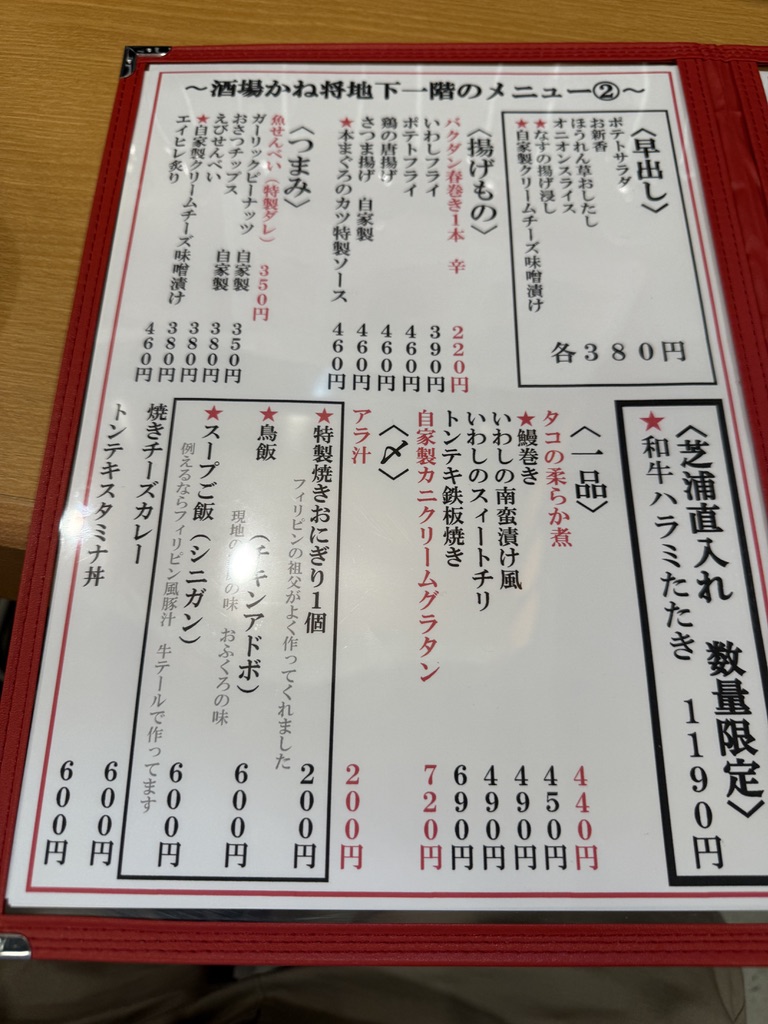 ～酒場かね将地下一階のメニュー②～
〈早出し〉
ポテトサラダ
お新香
ほうれん草おしたし
オニオンスライス
★なすの揚げ浸し
★自家製クリームチーズ味噌漬け
各３８０円
〈揚げもの〉
バクダン春巻き1本 辛 ２２０円
いわしフライ ３９０円
ポテトフライ ４６０円
鶏の唐揚げ ４６０円
さつま揚げ 自家製 ４６０円
★本まぐろのカツ特製ソース ４６０円
〈つまみ〉
魚せんべい（特製ダレ） ３５０円
ガーリックピーナッツ 自家製 ３５０円
おさつチップス 自家製 ３８０円
えびせんべい ３８０円
★自家製クリームチーズ味噌漬け ３８０円
エイヒレ炙り ４６０円
〈芝浦直入れ 数量限定〉
★和牛ハラミたたき １１９０円
〈一品〉
タコの柔らか煮 ４４０円
★鰻巻き ４５０円
いわしの南蛮漬け風 ４９０円
いわしのスィートチリ ４９０円
トンテキ鉄板焼き ６９０円
自家製カニクリームグラタン ７２０円
〈〆〉
アラ汁 ２００円
★特製焼きおにぎり1個 ２００円
フィリピンの祖父がよく作ってくれました
★鳥飯 （チキンアドボ） ６００円
現地の の味 おふくろの味
★スープご飯（シニガン） ６００円
例えるならフィリピン風豚汁 牛テールで作ってます
焼きチーズカレー ６００円
トンテキスタミナ丼 ６００円